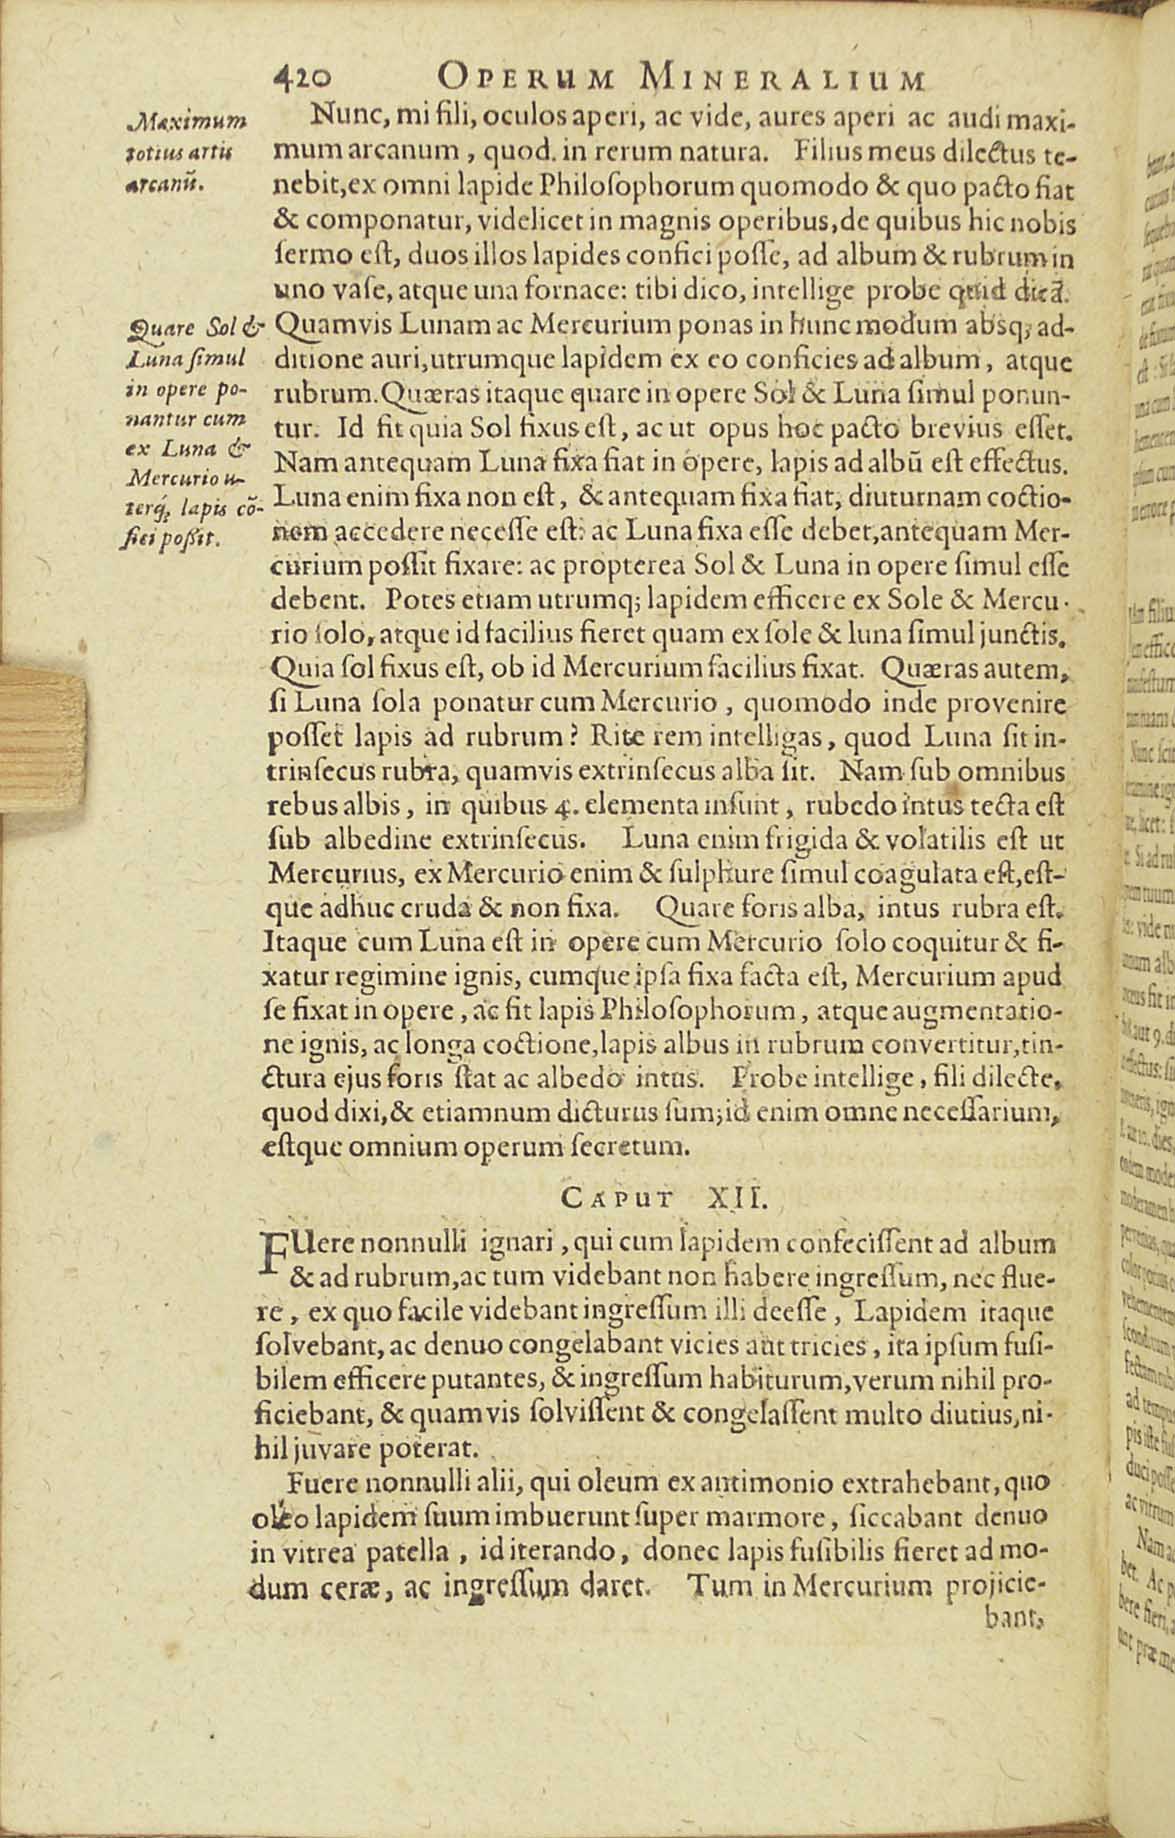 420 OPERUM MINERALIUM
Maximum
totius artis
arcanū.
Nunc, mi fili, oculos aperi, ac vide, aures aperi ac audi maxi-
mum arcanum, quod. in rerum natura. Filius meus dilectus te-
nebit, ex omni lapide Philoſophorum quomodo & quo pacto fiat
& componatur, videlicet in magnis operibus, de quibus hic nobis
ſermo eſt, duos illos lapides confici poſſe, ad album & rubrum in
uno vaſe, atque una fornace: tibi dico, intellige probe quid dicā.
Quare Sol &
Luna ſimul
in opere po-
nantur cum
ex Luna &
Mercurio u-
terq́; lapis cō-
fici poßit.
Quamvis Lunam ac Mercurium ponas in hunc modum absq; ad-
ditione auri, utrumque lapidem ex eo conficies ad album, atque
rubrum. Quæras itaque quare in opere Sol & Luna ſimul ponun-
tur. Id fit quia Sol fixus eſt, ac ut opus hoc pacto brevius eſſet.
Nam antequam Luna fixa fiat in opere, lapis ad albū eſt effectus.
Luna enim fixa non eſt, & antequam fixa fiat, diuturnam coctio-
nem accedere neceſſe eſt: ac Luna fixa eſſe debet, antequam Mer-
curium poſſit fixare: ac propterea Sol & Luna in opere ſimul eſſe
debent. Potes etiam utrumq; lapidem efficere ex Sole & Mercu-
rio ſolo, atque id facilius fieret quam ex ſole & luna ſimul junctis.
Quia ſol fixus eſt, ob id Mercurium facilius fixat. Quæras autem,
ſi Luna ſola ponatur cum Mercurio, quomodo inde provenire
poſſet lapis ad rubrum? Rite rem intelligas, quod Luna ſit in-
trinſecus rubra, quamvis extrinſecus alba ſit. Nam ſub omnibus
rebus albis, in quibus 4. elementa inſunt, rubedo intus tecta eſt
ſub albedine extrinſecus. Luna enim frigida & volatilis eſt ut
Mercurius, ex Mercurio enim & ſulphure ſimul coagulata eſt, eſt-
que adhuc cruda & non fixa. Quare foris alba, intus rubra eſt.
Itaque cum Luna eſt in opere cum Mercurio ſolo coquitur & fi-
xatur regimine ignis, cumque ipſa fixa facta eſt, Mercurium apud
ſe fixat in opere, ac fit lapis Philoſophorum, atque augmentatio-
ne ignis, ac longa coctione, lapis albus in rubrum convertitur, tin-
ctura ejus foris ſtat ac albedo intus. Probe intellige, fili dilecte,
quod dixi, & etiamnum dicturus ſum; id enim omne neceſſarium,
eſtque omnium operum ſecretum.
CAPUT XII.
FUere nonnulli ignari, qui cum lapidem confeciſſent ad album
& ad rubrum, ac tum videbant non habere ingreſſum, nec flue-
re, ex quo facile videbant ingreſſum illi deeſſe, Lapidem itaque
ſolvebant, ac denuo congelabant vicies aut tricies, ita ipſum fuſi-
bilem efficere putantes, & ingreſſum habiturum, verum nihil pro-
ficiebant, & quamvis ſolviſſent & congelaſſent multo diutius, ni-
hil juvare poterat.
Fuere nonnulli alii, qui oleum ex antimonio extrahebant, quo
oleo lapidem ſuum imbuerunt ſuper marmore, ſiccabant denuo
in vitrea patella, id iterando, donec lapis fuſibilis fieret ad mo-
dum ceræ, ac ingreſſum daret. Tum in Mercurium projicie-
bant,